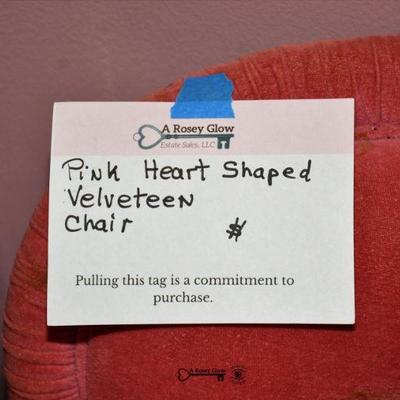 A Rosey Glow
Estate Sales, LLC
Pink Heart Shaped
Velveteen
Chair
$
Pulling this tag is a commitment to
purchase.
A Rosey Glow